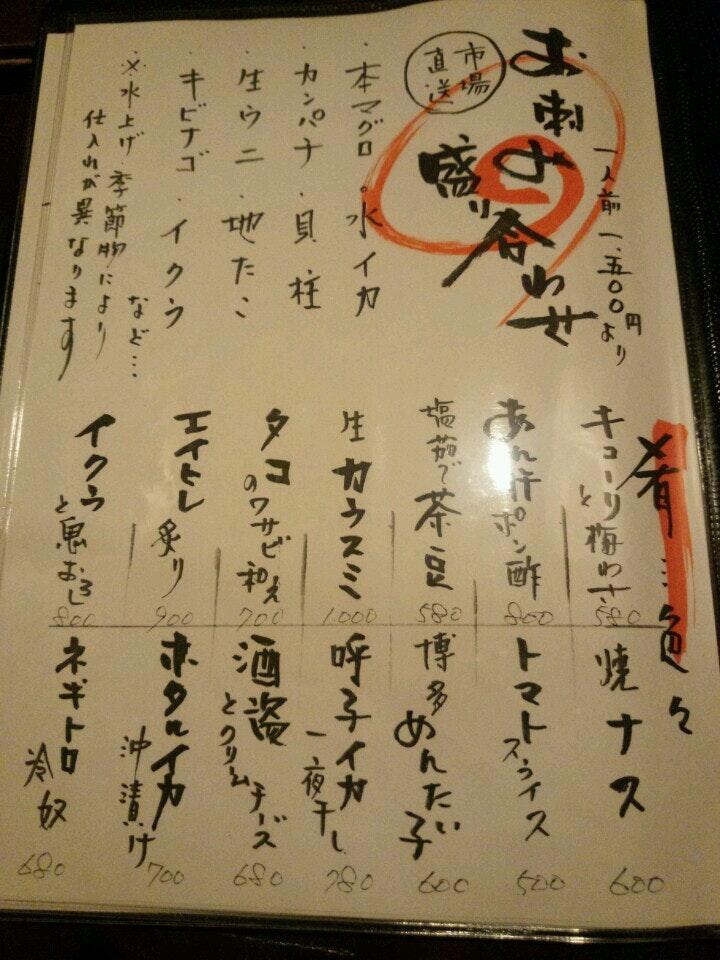 お刺身
盛り合わせ
一人前一、五〇〇円より
市場
直送
・本マグロ・水イカ
・カンパチ・貝柱
・生ウニ・地たこ
・キビナゴ・イクラ
など…
※水上げ・季節物により
仕入れが異なります
肴…色々
キューリと梅わさ 580
あん肝ポン酢 800
塩茹で茶豆 580
生カラスミ 1,000
タコのワサビ和え 700
エイヒレ炙り 900
イクラと鬼おろし 800
焼ナス 600
トマトスライス 500
博多めんたい子 600
呼子イカ一夜干し 780
酒盗とクリームチーズ 680
ホタルイカ沖漬け 700
ネギトロ冷奴 680